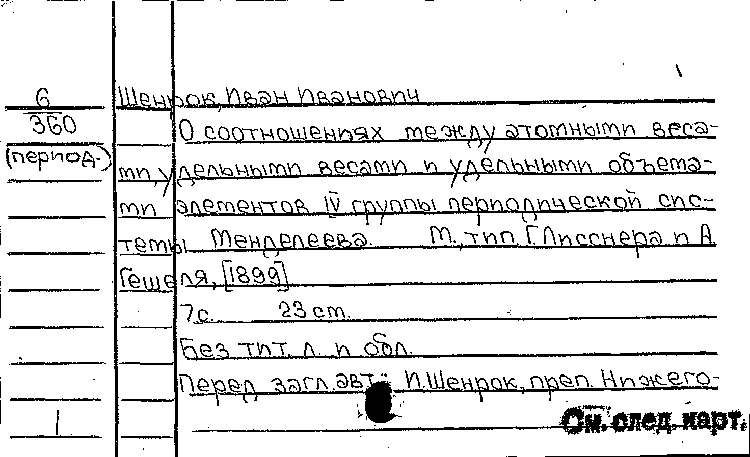 6
360
(период.)
Шенрок, Иван Иванович
О соотношениях между атомными веса-
ми, удельными весами и удельными объема-
ми элементов IV группы периодической сис-
темы Менделеева. М., тип. Г. Лисснера и А.
Гешеля, [1899]
7с. 23 см.
Без тит. л. и обл.
Перед загл. авт.: И. Шенрок, преп. Нижего-
1
См. след. карт.